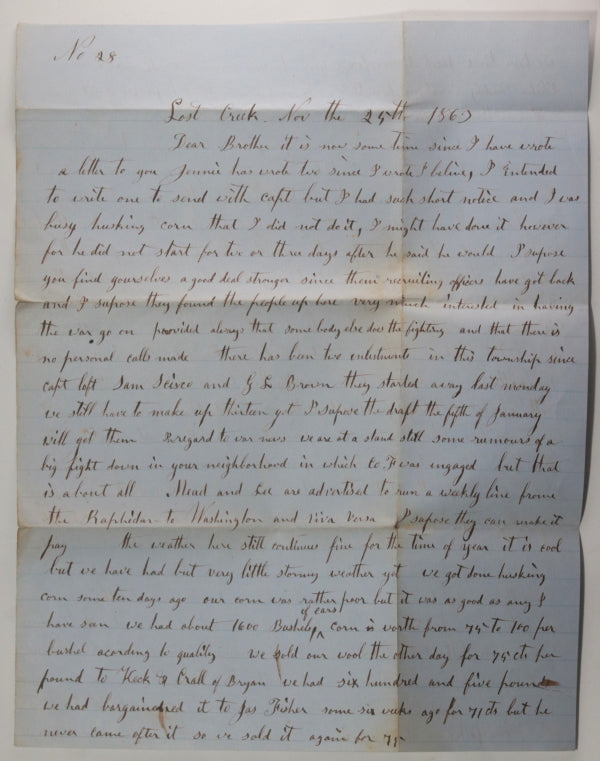 No 28
Lost Creek Nov the 25th 1863
Dear Brother it is now some time since I have wrote
a letter to you Jennie has wrote two since I wrote I belive, I Entended
to write one to send with capt but I had such short notice and I was
busy husking corn that I did not do it, I might have done it however
for he did not start for two or three days after he said he would I supose
you find yourselves a good deal stronger since them recruiting officers have got back
and I supose they found the people up here very much interested in having
the war go on provided always that some body else does the fighting and that there is
no personal calls made there has been two enlistments in this township since
capt left Sam Scisco and G L Brown they started away last monday
we still have to make up thirteen yet I supose the draft the fifth of January
will get them Regard to war news we are at a stand still some rumours of a
big fight down in your neighborhood in which Co. F was engaged but that
is about all Mead and Lee are advertised to run a weekly line frome
the Raphidan to Washington and viva versa I supose they can make it
pay the weather here still continues fine for the time of year it is cool
but we have had but very little stormy weather yet we got done husking
corn some ten days ago our corn was rather poor but it was as good as any I
have saw we had about 1600 Bushels of ears corn is worth from 75 to 100 per
bushel acording to quality we sold our wool the other day for 75 cts per
pound to Keck & Crall of Bryan we had six hundred and five pounds
we had bargained it to Jas Fisher some six weeks ago for 71 cts but he
never came after it so we sold it again for 75